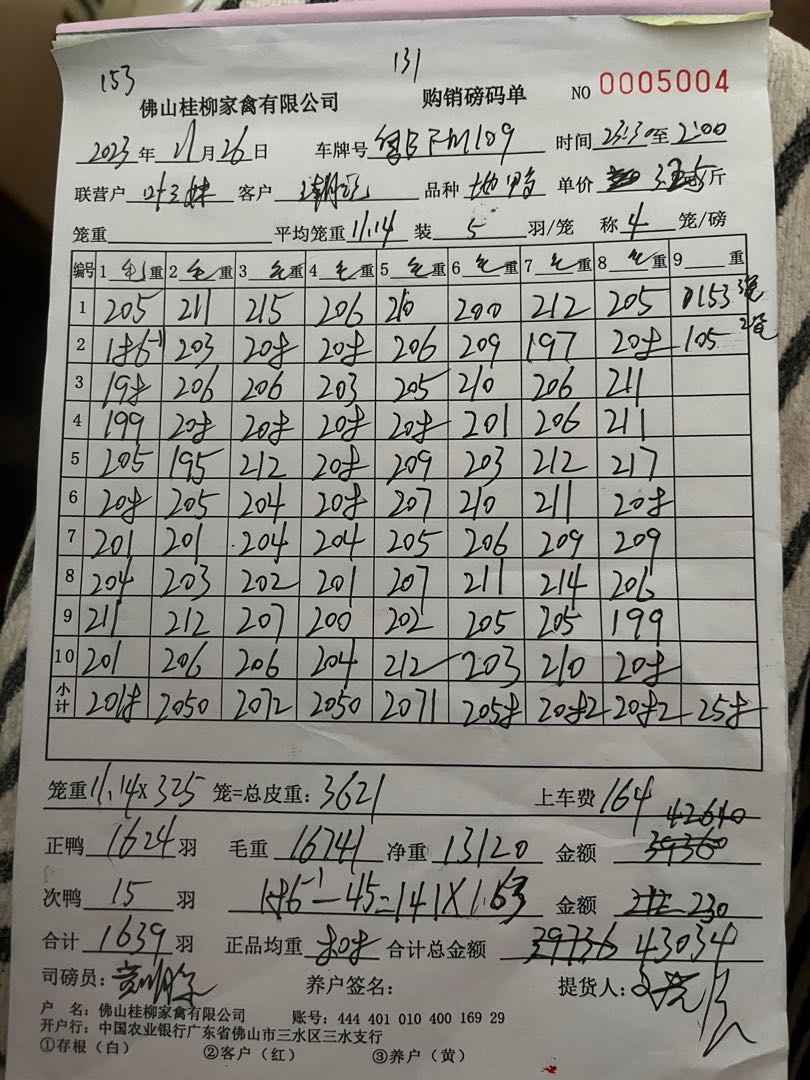 153 131
佛山桂柳家禽有限公司 购销磅码单 NO 0005004
2023年11月26日 车牌号 109 时间23:30至2:00
联营户 叶三妹 客户 品种 地鸭 单价 3.25元/斤
笼重 平均笼重11.14 装 5 羽/笼 称 4 笼/磅
编号 1 毛重 2 毛重 3 毛重 4 毛重 5 毛重 6 毛重 7 毛重 8 毛重 9 重
1 205 211 215 206 210 200 212 205 153 3笼
2 186 203 208 208 206 209 197 208 105 2笼
3 198 206 206 203 205 210 206 211
4 199 208 208 208 208 201 206 211
5 205 195 212 208 209 203 212 217
6 208 205 204 208 207 210 211 208
7 201 201 204 204 205 206 209 209
8 204 203 202 201 207 211 214 206
9 211 212 207 200 202 205 205 199
10 201 206 206 204 212 203 210 208
小计 2018 2050 2072 2050 2071 2058 2082 2082 258
笼重11.14X325笼=总皮重:3621 上车费 164
42640
正鸭 1624 羽 毛重 16741 净重 13120 金额 39360
次鸭 15 羽 186-45=141X1.63 金额 212 230
合计 1639 羽 正品均重 808 合计总金额 39736 43034
司磅员: 养户签名: 提货人:
户 名:佛山桂柳家禽有限公司 账号:444 401 010 400 169 29
开户行:中国农业银行广东省佛山市三水区三水支行
①存根(白) ②客户(红) ③养户(黄)